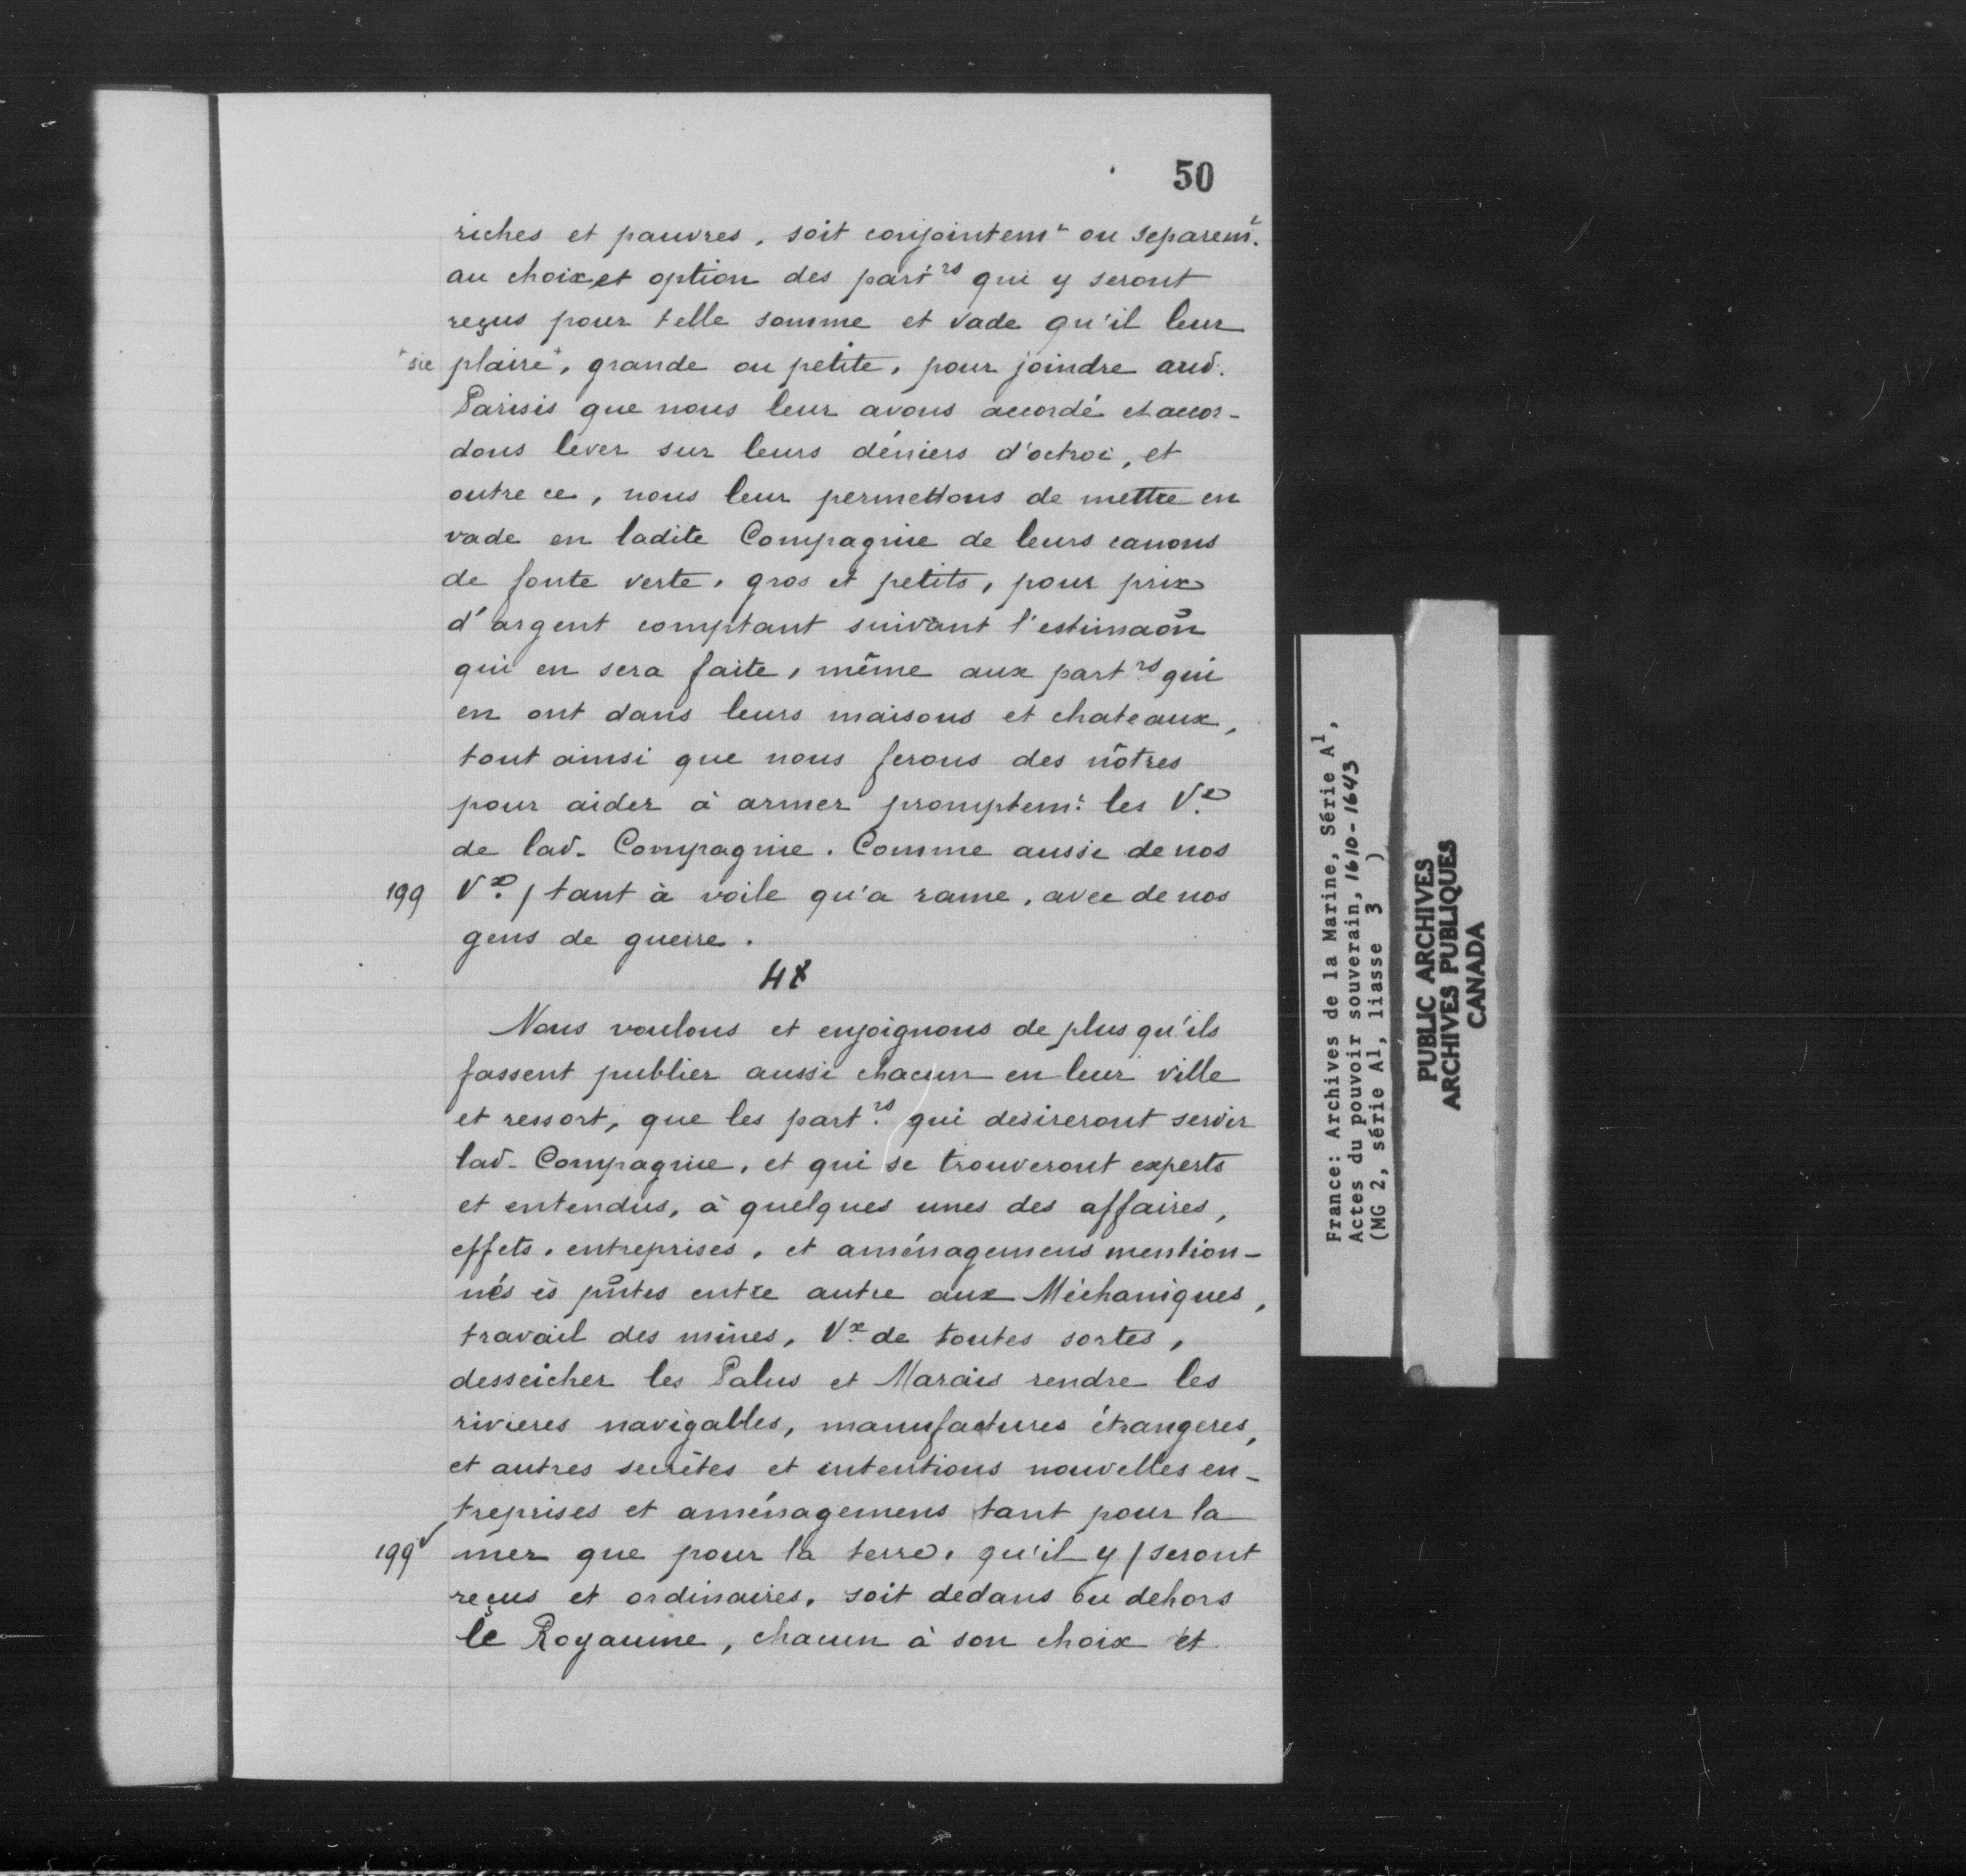 50
riches et pauvres, soit conjointem.t ou separem.t
au choix et option des part.rs qui y seront
reçus pour telle somme et vade qu'il leur
+ sic plaire+, grande ou petite, pour joindre aud.
Parisis que nous leur avons accordé et accor-
dons lever sur leurs déniers d'octroi, et
outre ce, nous leur permettons de mettre en
vade en ladite Compagnie de leurs canons
de fonte verte, gros et petits, pour prix
d'argent comptant suivant l'estimaõn
qui en sera faite, même aux part.rs qui
en ont dans leurs maisons et chateaux,
tout ainsi que nous ferons des nôtres
pour aider à armer promptem.t les V.x
de lad. Compagnie. Comme aussi de nos
199 V.x / tant à voile qu'a rame, avec de nos
gens de guerre.
Nous voulons et enjoignons de plus qu'ils
fassent publier aussi chacun en leur ville
et ressort, que les part.rs qui desireront servir
lad. Compagnie, et qui se trouveront experts
et entendus, à quelques unes des affaires,
effets, entreprises, et aménagemens mention-
nés ès pñtes entre autre aux Méchaniques,
travail des mines, V.x de toutes sortes,
desseicher les Palus et Marais rendre les
rivieres navigables, manufactures étrangeres,
et autres secrètes et intentions nouvelles en-
treprises et aménagemens tant pour la
199v mer que pour la terre, qu'il y / seront
reçus et ordinaires, soit dedans ou dehors
le Royaume, chacun à son choix et
France: Archives de la Marine, Série A1,
Actes du pouvoir souverain, 1610-1643
(MG 2, série A1, liasse 3 )
PUBLIC ARCHIVES
ARCHIVES PUBLIQUES
CANADA